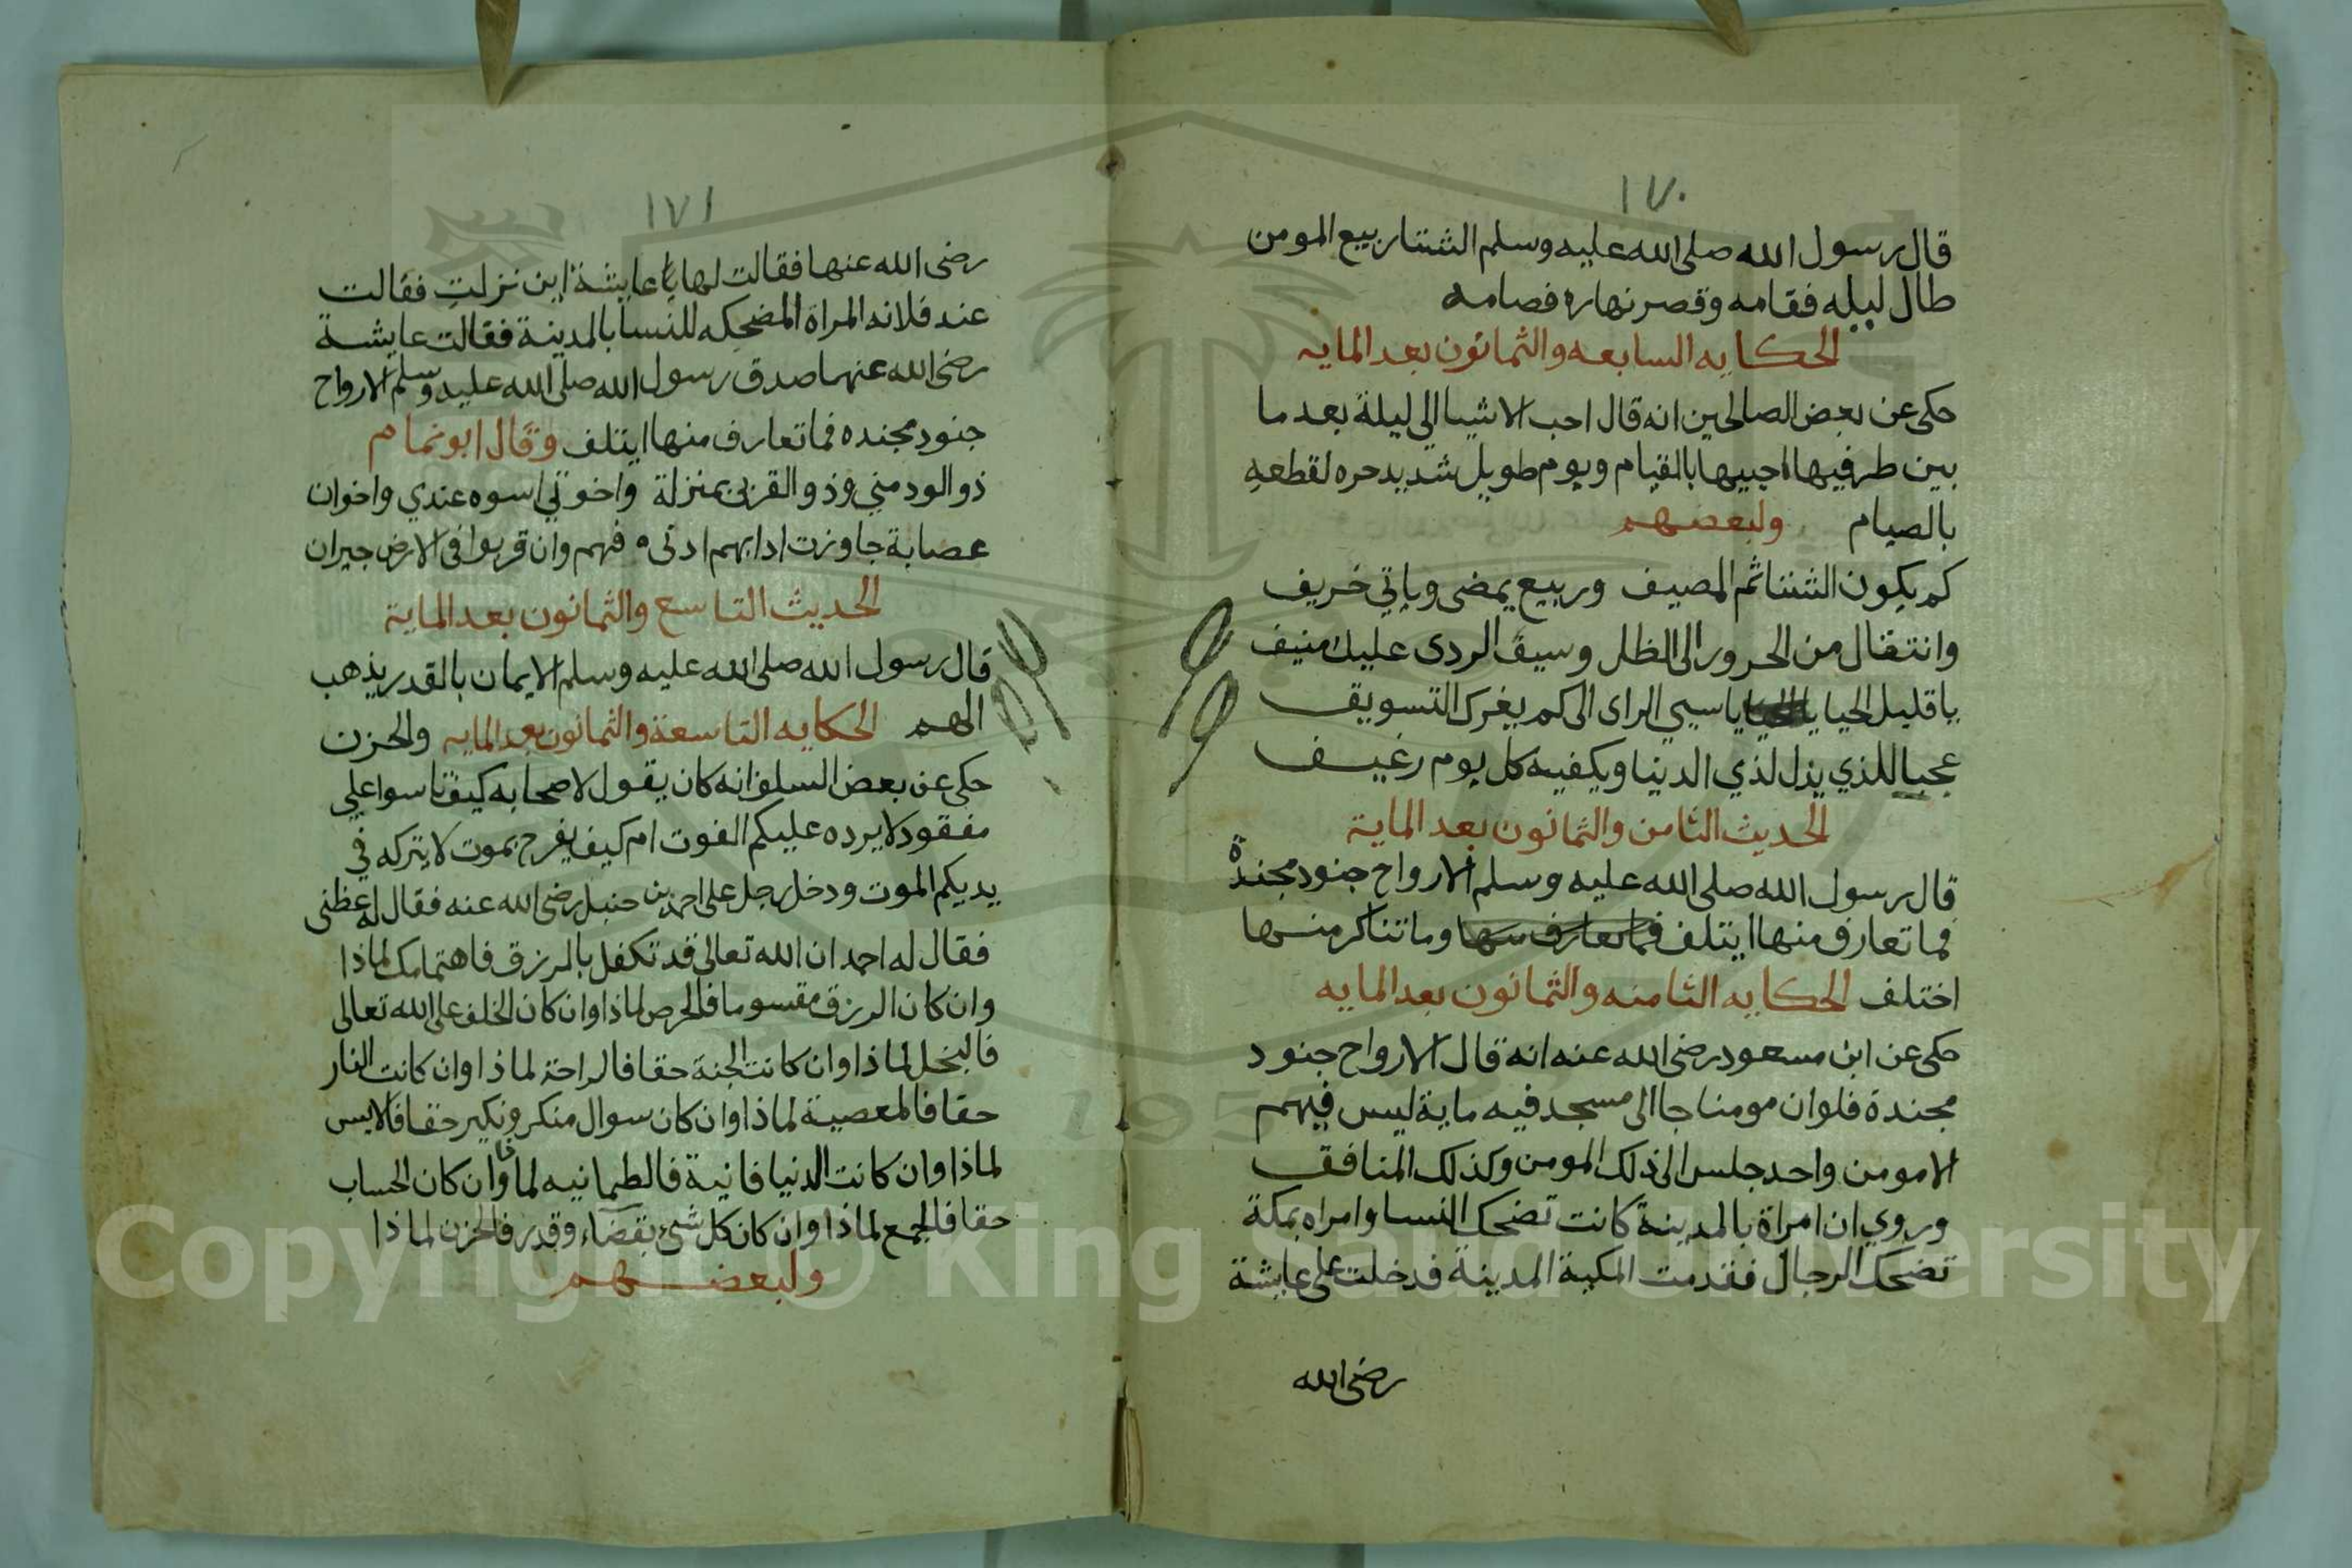 ١٧٠
قال رسول الله صلى الله عليه وسلم الشتا ربيع المومن
طال ليله فقامه وقصر نهاره فصامه
الحكايه السابعه والثمانون بعد المايه
حكى عن بعض الصالحين انه قال احب الاشيا الي ليلة بعد ما
بين طرفيها احييها بالقيام ويوم طويل شديد حره لقطعه
بالصيام ولبعضهم
كم يكون الشتا ثم المصيف وربيع يمضى وياتي خريف
وانتقال من الحرور الى الظل وسيف الردى عليك منيف
يا قليل الحيا يا سيي الراى الى كم يغرك التسويف
عجبا للذي يذل لذي الدنيا ويكفيه كل يوم رغيف
الحديث الثامن والثمانون بعد الماية
قال رسول الله صلى الله عليه وسلم الارواح جنود مجندة
فما تعارف منها ايتلف فما تعارف منها وما تناكر منها
اختلف الحكايه الثامنه والثمانون بعد المايه
حكى عن ابن مسعود رضى الله عنه انه قال الارواح جنود
مجندة فلوان مومنا جا الى مسجد فيه ماية ليس فيهم
الا مومن واحد جلس الى ذلك المومن وكذلك المنافق
وروي ان امراة بالمدينة كانت تضحك النسا وامراه بمكة
تضحك الرجال فقدمت المكية المدينة فدخلت على عايشة
رضى الله
١٧١
رضى الله عنها فقالت لها يا عايشة اين نزلت فقالت
عند فلانه المراة المضحكه للنسا بالمدينة فقالت عايشة
رضى الله عنها صدق رسول الله صلى الله عليه وسلم الارواح
جنود مجنده فما تعارف منها ايتلف وقال ابو تمام
ذو الود مني وذو القربى بمنزلة واخوتي اسوه عندي واخوان
عصابة جاوزت ادابهم ادبي فهم وان قربوا في الارض جيران
الحديث التاسع والثمانون بعد الماية
قال رسول الله صلى الله عليه وسلم الايمان بالقدر يذهب
الهم الحكايه التاسعة والثمانون بعد المايه والحزن
حكى عن بعض السلف انه كان يقول لاصحابه كيف تاسوا على
مفقود لا يرده عليكم الفوت ام كيف يفرح بموت لا يتركه في
يديكم الموت ودخل رجل على احمد بن حنبل رضى الله عنه فقال له عظنى
فقال له احمد ان الله تعالى قد تكفل بالرزق فاهتمامك لماذا
وان كان الرزق مقسوما فالحرص لماذا وان كان الخلف على الله تعالى
فالبخل لماذا وان كانت الجنة حقا فالراحة لماذا وان كانت النار
حقا فالمعصية لماذا وان كان سوال منكر ونكير حقا فالانس
لماذا وان كانت الدنيا فانية فالطمانيه لماذا وان كان الحساب
حقا فالجمع لماذا وان كان كل شيء بقضاء وقدر فالحزن لماذا
ولبعضهم
Copyright © King Saud University
195